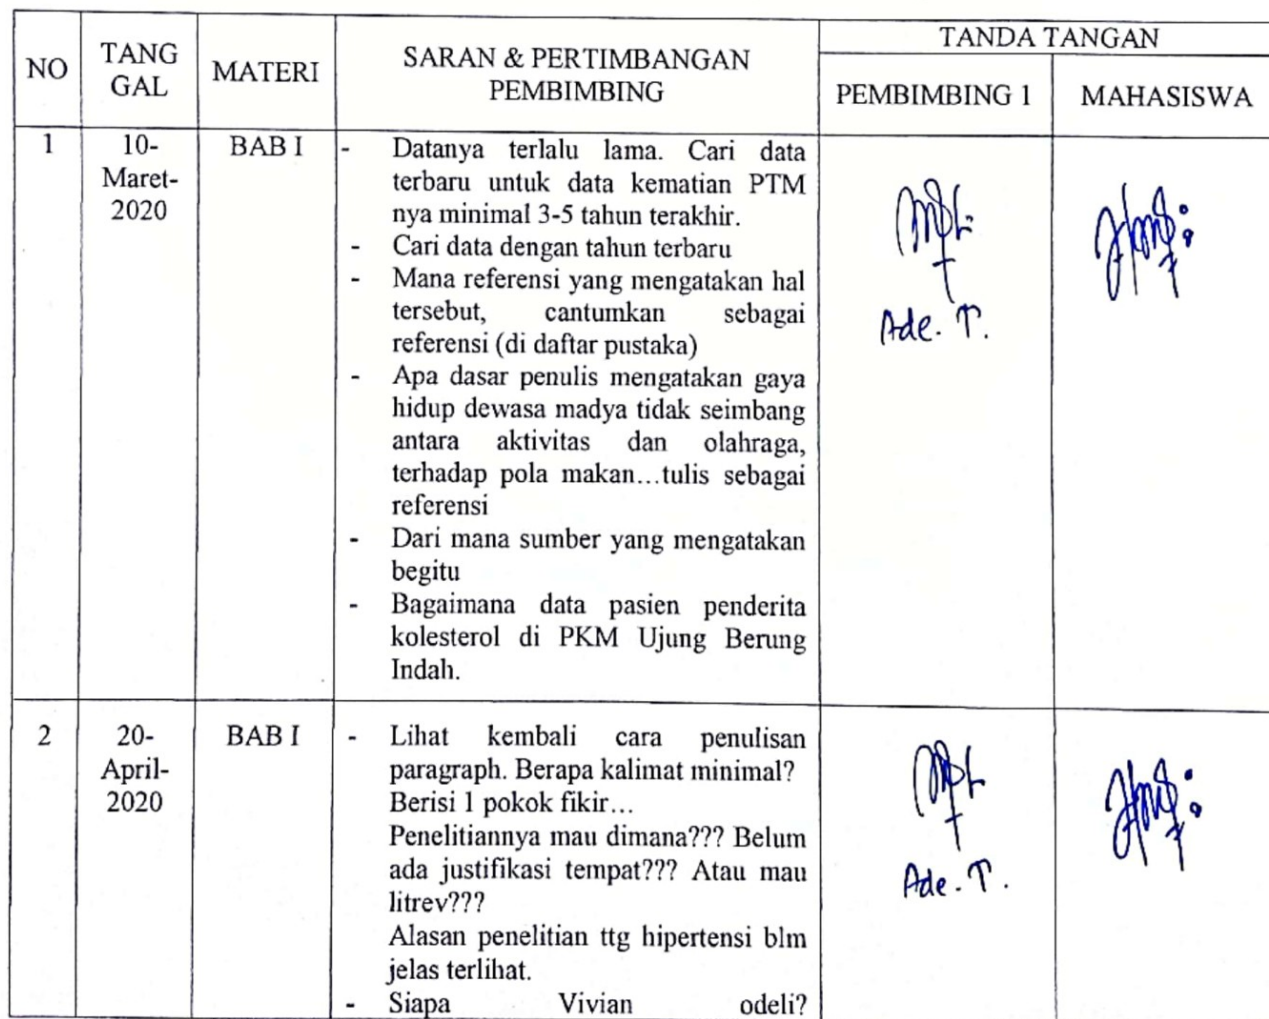 NO
TANG
GAL
MATERI
SARAN & PERTIMBANGAN
PEMBIMBING
TANDA TANGAN
PEMBIMBING 1
MAHASISWA
1
10-
Maret-
2020
BAB I
- Datanya terlalu lama. Cari data
terbaru untuk data kematian PTM
nya minimal 3-5 tahun terakhir.
- Cari data dengan tahun terbaru
- Mana referensi yang mengatakan hal
tersebut, cantumkan sebagai
referensi (di daftar pustaka)
- Apa dasar penulis mengatakan gaya
hidup dewasa madya tidak seimbang
antara aktivitas dan olahraga,
terhadap pola makan...tulis sebagai
referensi
- Dari mana sumber yang mengatakan
begitu
- Bagaimana data pasien penderita
kolesterol di PKM Ujung Berung
Indah.
Ade. T.
2
20-
April-
2020
BAB I
- Lihat kembali cara penulisan
paragraph. Berapa kalimat minimal?
Berisi 1 pokok fikir...
Penelitiannya mau dimana??? Belum
ada justifikasi tempat??? Atau mau
litrev???
Alasan penelitian ttg hipertensi blm
jelas terlihat.
- Siapa Vivian odeli?
Ade. T.